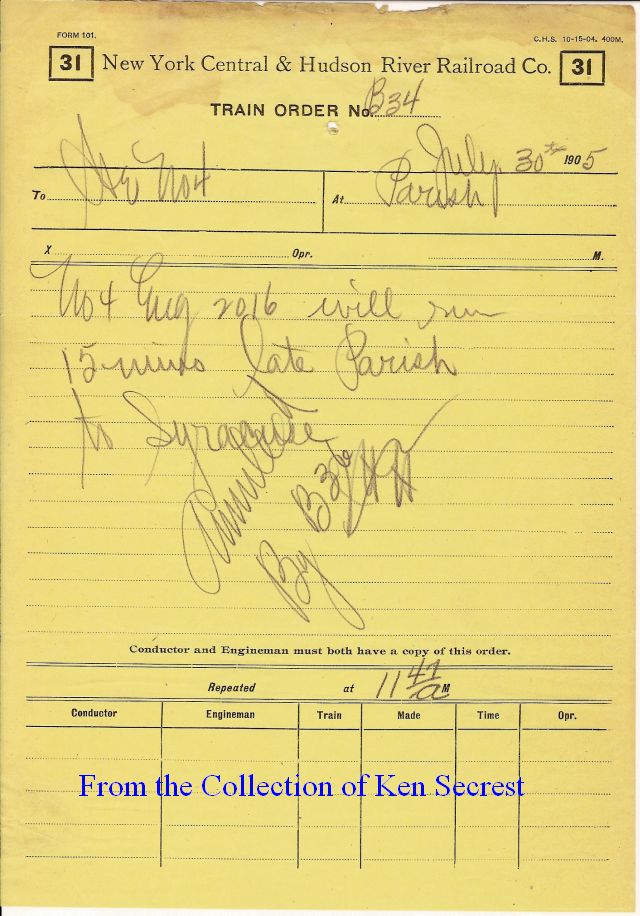 FORM 101.
C.H.S. 10-15-04. 400M.
31 New York Central & Hudson River Railroad Co. 31
TRAIN ORDER No. B34
July 30th 1905
To No 4 At Parish
X Opr. M.
No 4 Eng 2016 will run
15 mins late Parish
to Syracuse
Annulled
By B36
Conductor and Engineman must both have a copy of this order.
Repeated at 11 47 a M
Conductor Engineman Train Made Time Opr.
From the Collection of Ken Secrest